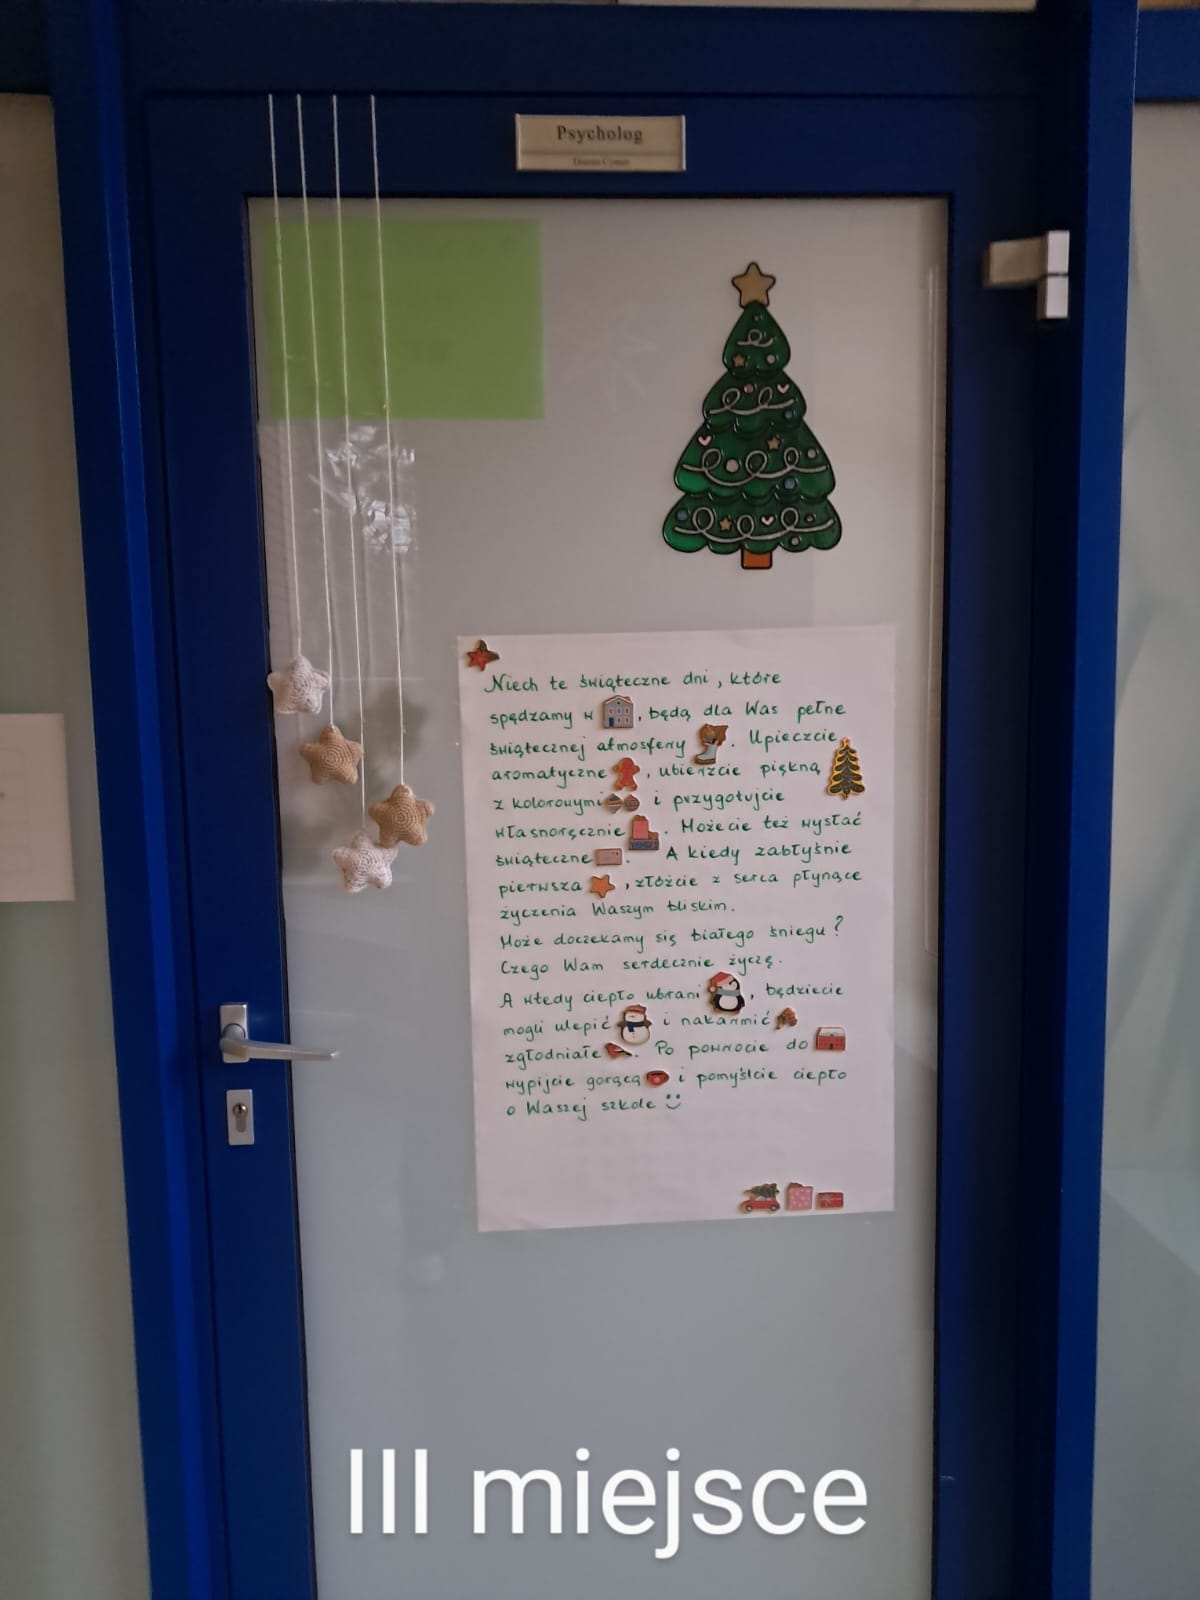 Psycholog
Niech te świąteczne dni, które
spędzamy w , będą dla Was pełne
świątecznej atmosfery . Upieczcie
aromatyczne , ubierzcie piękną
z kolorowymi i przygotujcie
własnoręcznie . Możecie też wysłać
świąteczne . A kiedy zabłyśnie
pierwsza , złóżcie z serca płynące
życzenia Waszym bliskim.
Może doczekamy się białego śniegu?
Czego Wam serdecznie życzę.
A wtedy ciepło ubrani , będziecie
mogli ulepić i nakarmić
zgłodniałe . Po powrocie do
wypijcie gorącą i pomyślcie ciepło
o Waszej szkole
III miejsce